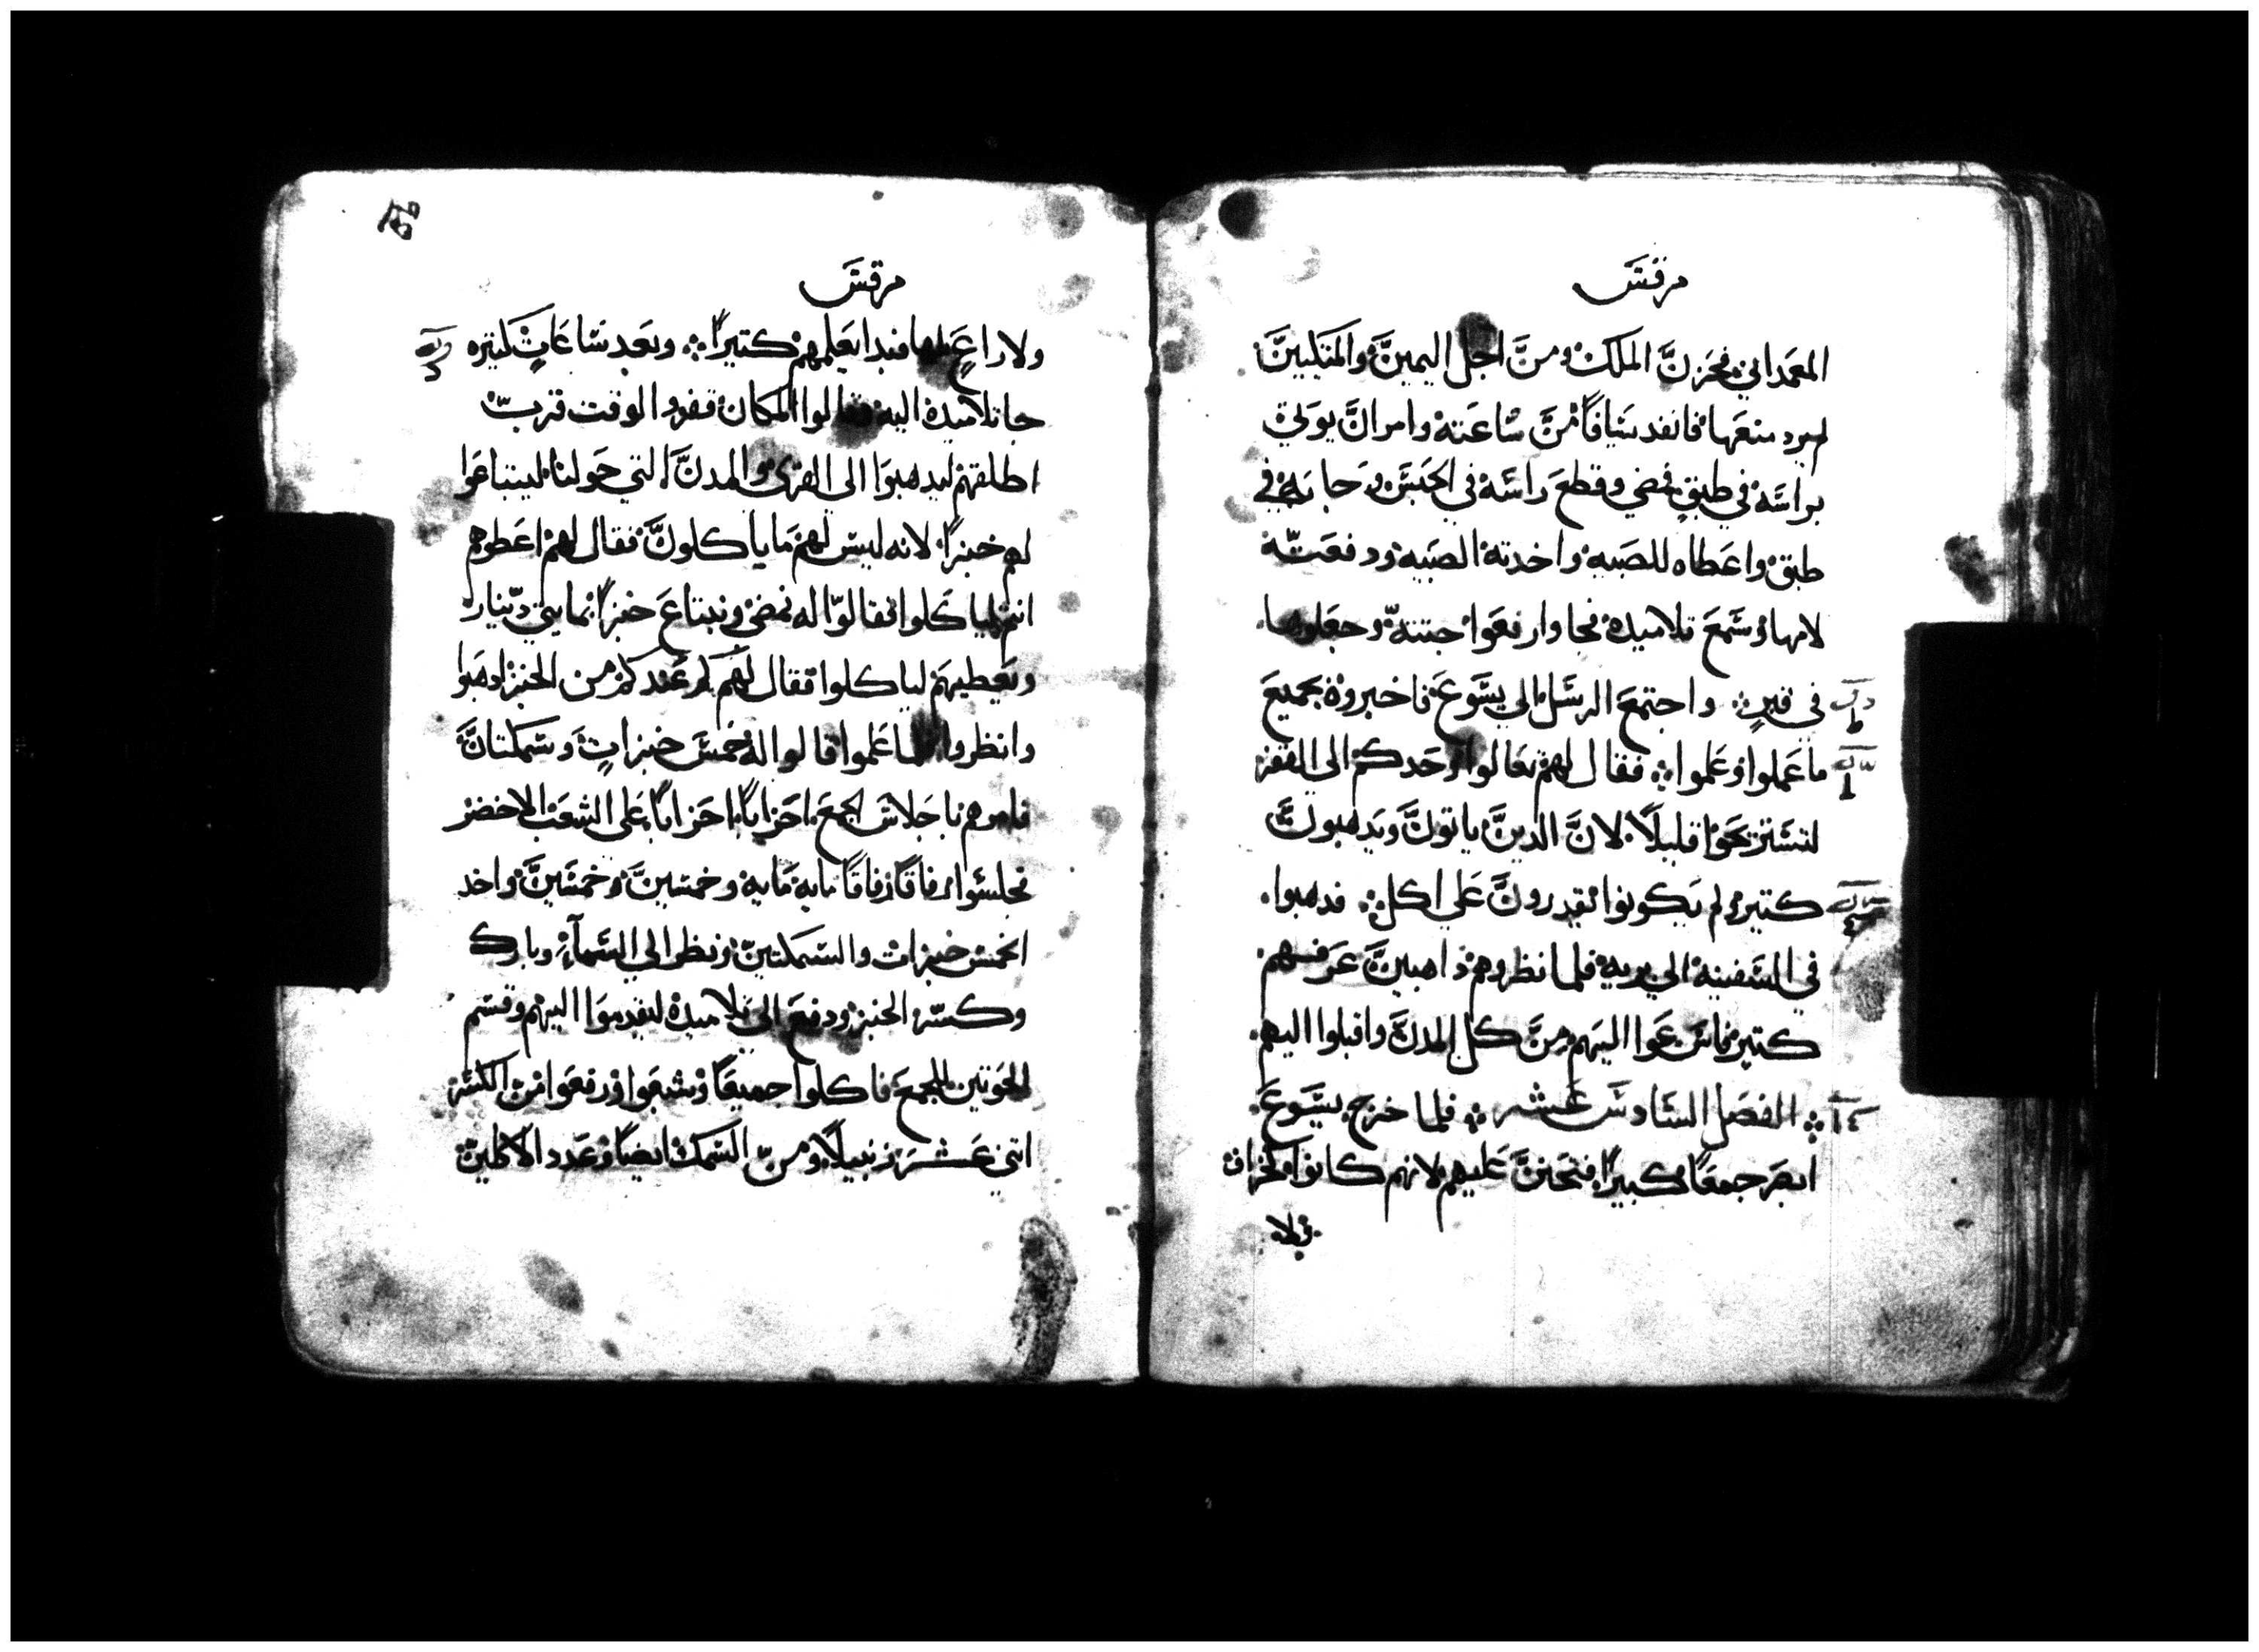 مرقس
المعمداني فحزن الملك ومن اجل اليمين والمتكيين
لم يرد منعها فانفد سيافا من ساعته وامر ان يوتي
براسه في طبق فمضي وقطع راسه في الحبس وجا به في
طبق واعطاه للصبيه واخدته الصبيه ودفعته
لامها وسمع تلاميده فجاوا رفعوا جتته وجعلوها
في قبر واجتمع الرسل الي يسوع فاخبروه بجميع
ما عملوا وعلموا فقال لهم تعالوا وحدكم الي القفر
لتستريحوا قليلا لان الدين ياتون ويدهبون
كتير ولم يكونوا يقدرون علي اكل فدهبوا
في السفينه الي بريه فلما نظروهم داهبين عرفهم
كتير فاسرعوا اليهم من كل المدن واقبلوا اليهم
الفصل السادس عشر فلما خرج يسوع
ابصر جمعا كبيرا فتحنن عليهم لانهم كانوا كخراف
ولا
مرقس
ولا راع لها فبدا يعلمهم كتيرا وبعد ساعات كتيره
جا تلاميده اليه وقالوا المكان قفر والوقت قرب
اطلقهم ليدهبوا الي القري والمدن التي حولنا ليبتاعوا
لهم خبزا لانه ليس لهم ما ياكلون فقال لهم اعطوهم
انتم لياكلوا فقالوا له نمضي ونبتاع خبزا بمايتي دينار
ونعطيهم لياكلوا فقال لهم كم عندكم من الخبز ادهبوا
وانظروا فلما علموا قالوا له خمس خبزات وسمكتان
فامرهم باجلاس الجمع احزابا احزابا علي الشعب الاخضر
فجلسوا رفاقا رفاقا مايه مايه وخمسين وخمسين واخد
الخمس خبزات والسمكتين ونظر الي السماء وبارك
وكسر الخبز ودفع الي تلاميده ليقدموا اليهم وقسم
الحوتين للجمع فاكلوا جميعا وشبعوا ورفعوا من الكسر
اتني عشر زنبيلا ومن السمك ايضا وعدد الاكلين